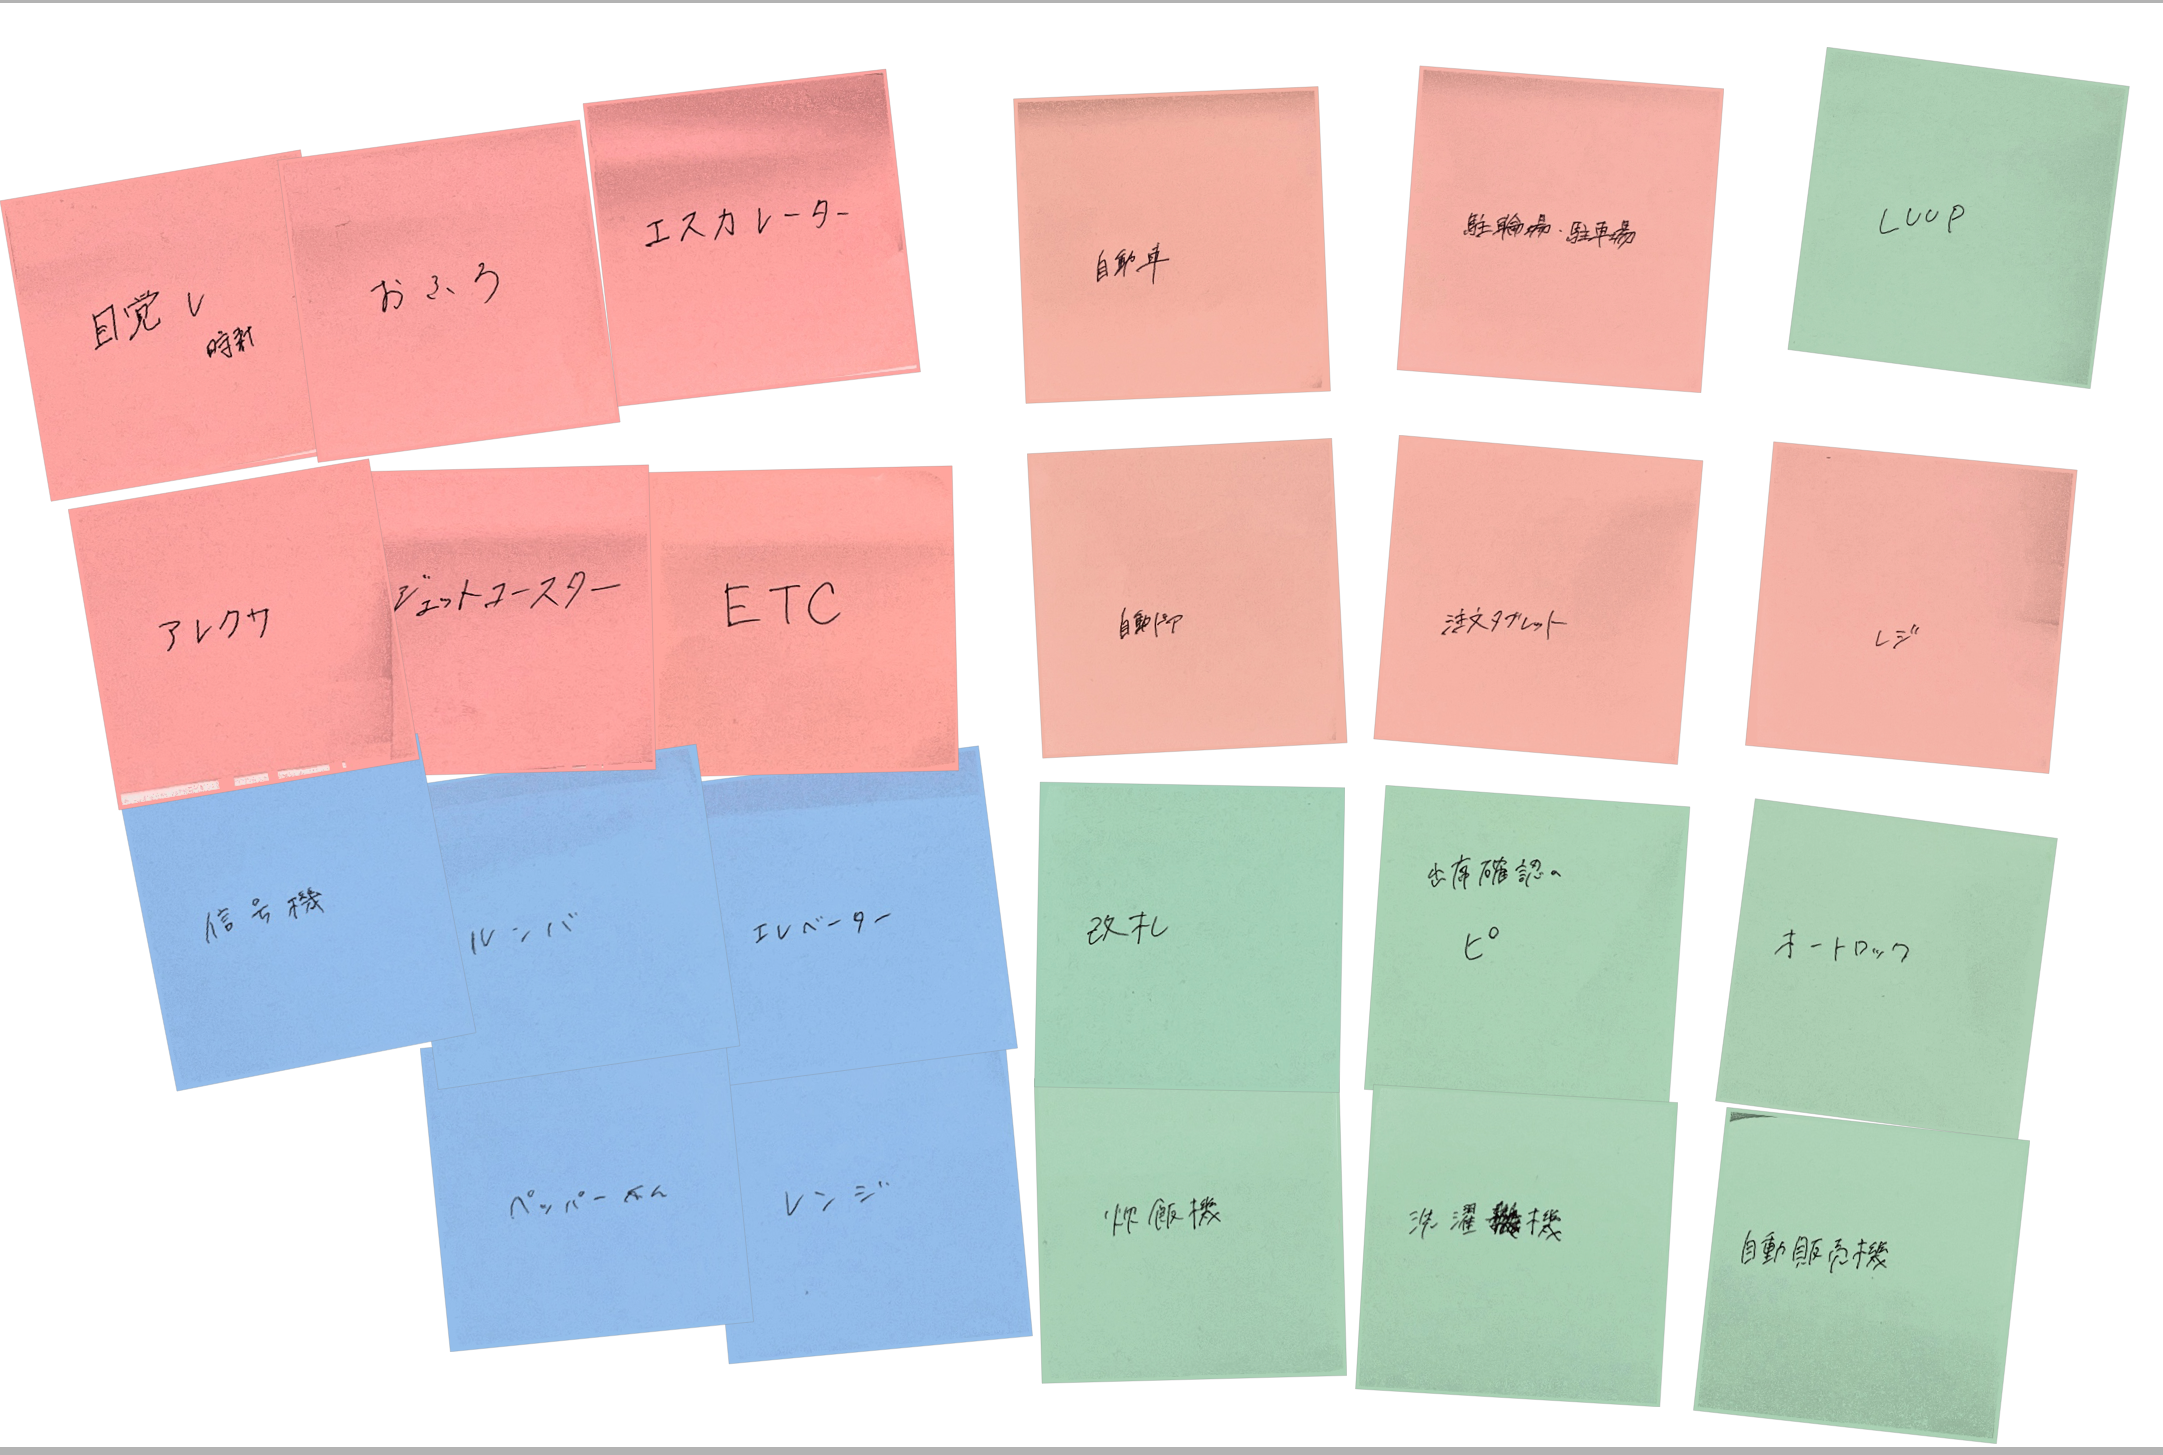 目覚し
時計
おふろ
エスカレーター
自動車
駐輪場・駐車場
LUUP
アレクサ
ジェットコースター
ETC
自動ドア
注文タブレット
レジ
信号機
ルンバ
エレベーター
改札
出席確認の
ピ
オートロック
ペッパーくん
レンジ
炊飯機
洗濯機
自動販売機